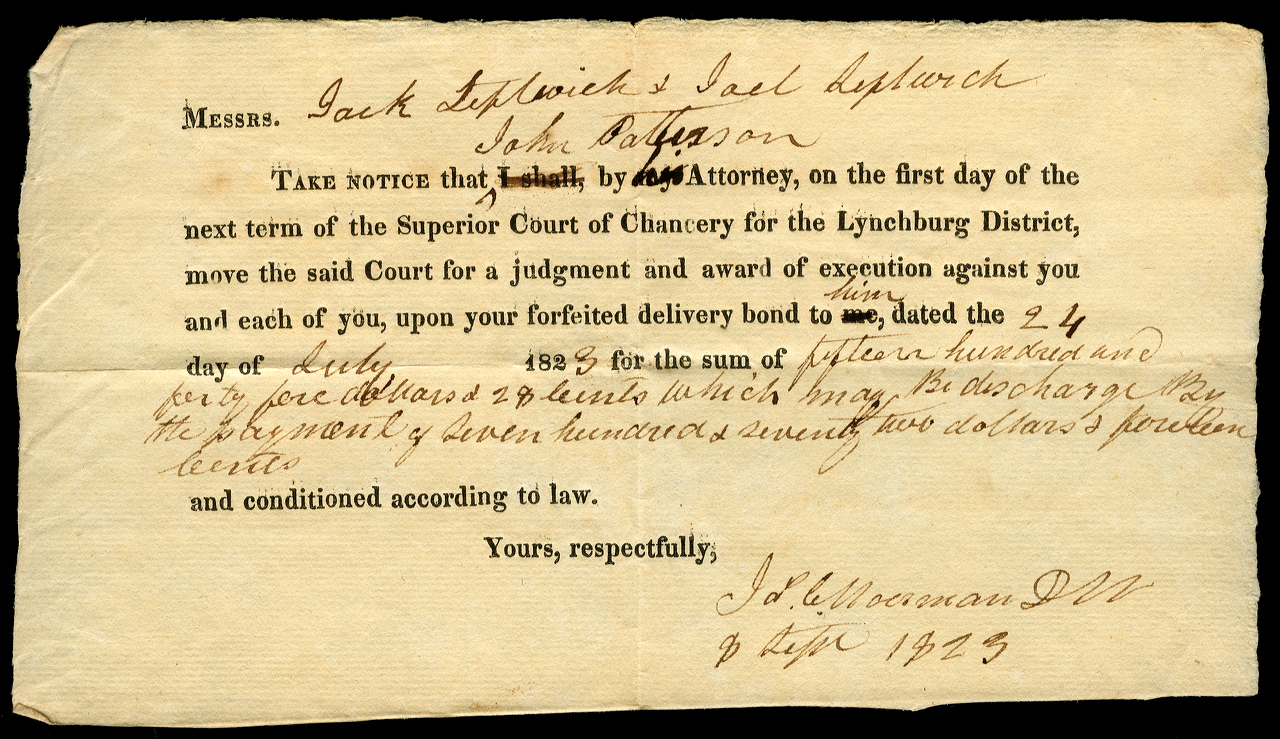 MESSRS. Jack Leftwich & Joel Leftwich
John Patterson
TAKE NOTICE that I shall, by his Attorney, on the first day of the
next term of the Superior Court of Chancery for the Lynchburg District,
move the said Court for a judgment and award of execution against you
him
and each of you, upon your forfeited delivery bond to me, dated the 24
day of July 1823 for the sum of fifteen hundred and
forty fore dollars & 28 cents which may Be discharge By
the payment of Seven hundred & seventy two dollars & fourteen
cents
and conditioned according to law.
Yours, respectfully,
Moorman
8 Sept 1823